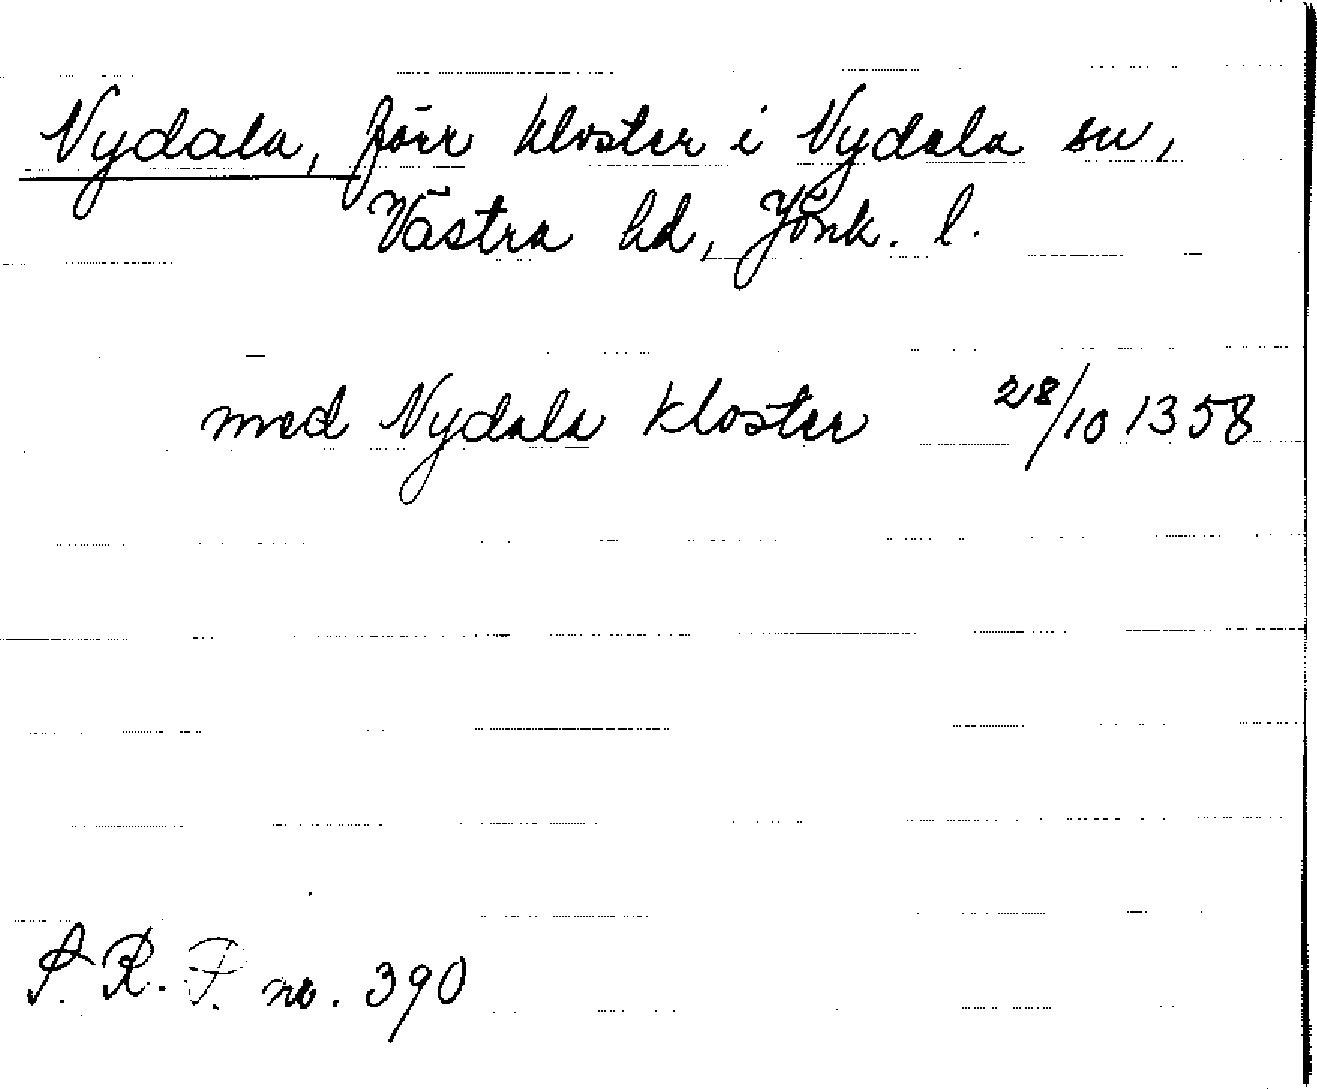 Nydala, förr kloster i Nydala sn,
Västra hd, Jönk. l.
med Nydala kloster 28/10 1358
S. R. P. no. 390